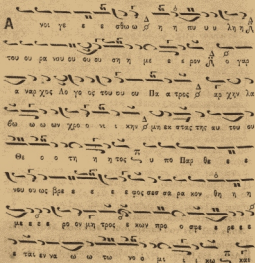 Α νοι γε ε ε σθω ω η η πυ υ λη η
του ου ρα νου ου ου ου ση η με ε ρον ο γαρ
ε ναρ χος Λο γος του ου ου Πα α τρος αρ χην λα
βω ω ων χρο ο νι κην μη εκ στας της αυ του ου
Θε ο τη η τος υ πο Παρ θε ε ε
νου ου ως βρε ε ε φος σεσ σα ρα κον θη η η
με ε ρο ον μη τρος ε κων προ ο σφε ε ρε ε ε
ε ται εν να α ω τω νο ο μι ι κω και